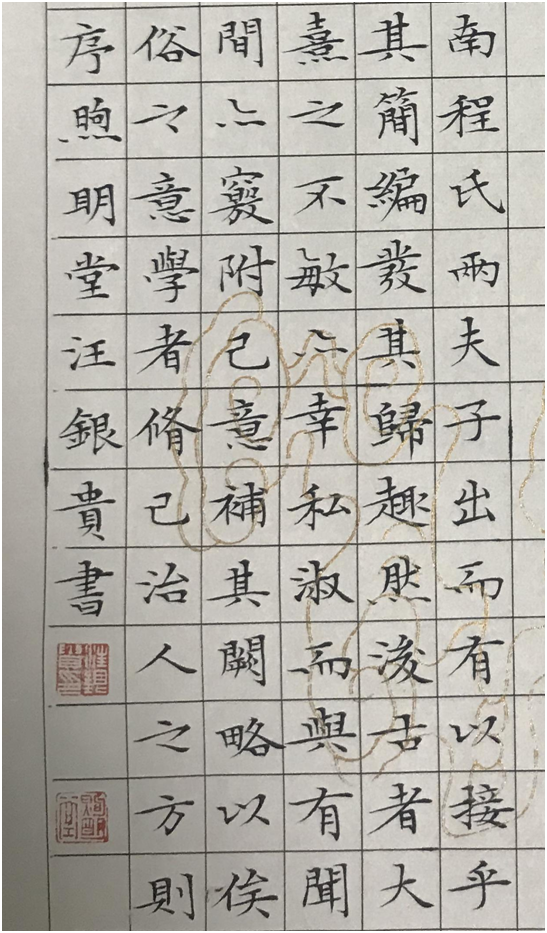 南程氏兩夫子出而有以接乎
其簡編發其歸趣然浚古者大
熹之不敏亦幸私淑而與有聞
間亦竊附己意補其闕略以俟
俗之意學者脩己治人之方則
序煦明堂汪銀貴書